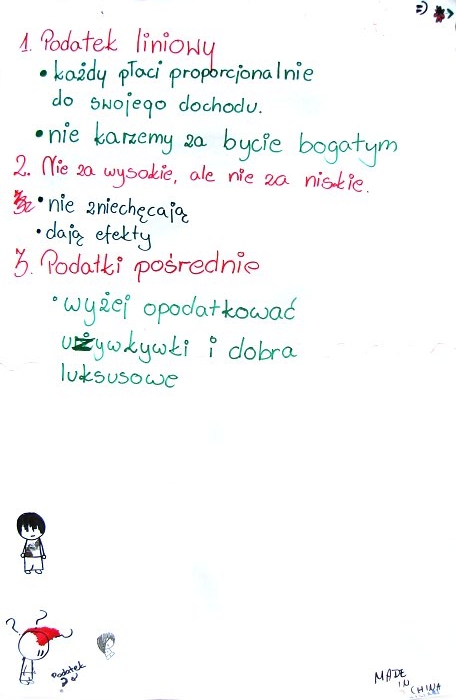 :)
1. Podatek liniowy
• każdy płaci proporcjonalnie
do swojego dochodu.
• nie karzemy za bycie bogatym
2. Nie za wysokie, ale nie za niskie.
• nie zniechęcają
• dają efekty
3. Podatki pośrednie
• wyżej opodatkować
używkywki i dobra
luksusowe
? ?
Podatek
MADE
IN
CHINA